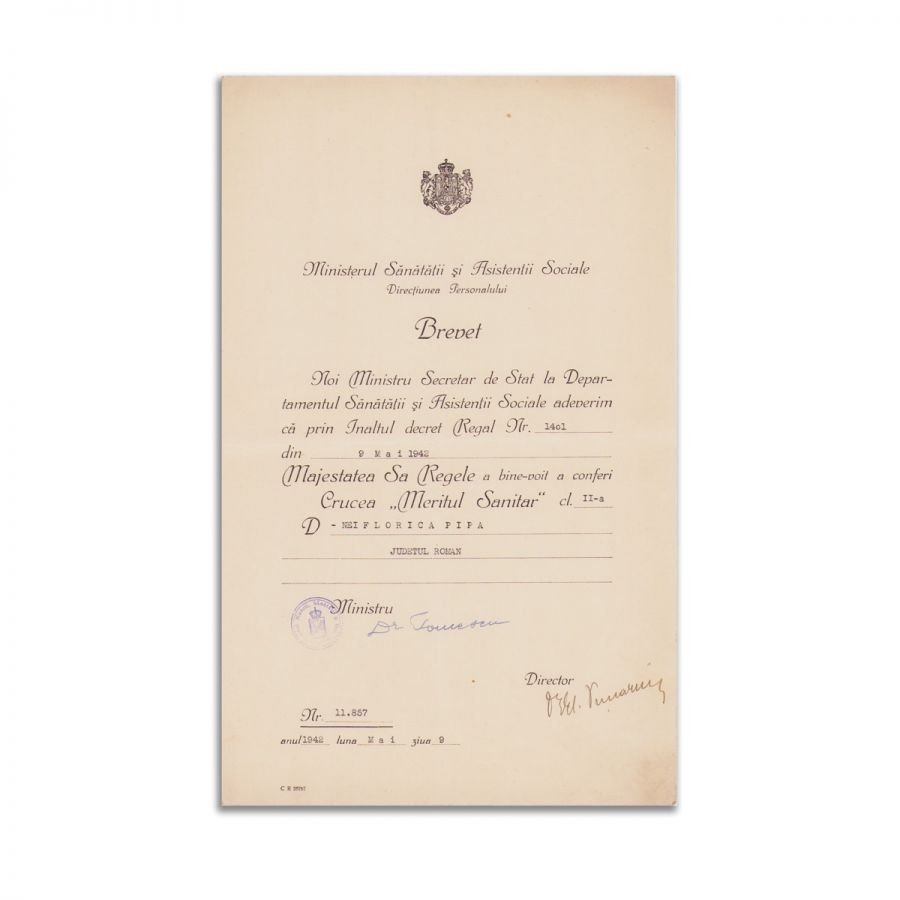 Ministerul Sănătății și Asistenții Sociale
Direcțiunea Personalului
Brevet
Noi Ministru Secretar de Stat la Depar-
tamentul Sănătății și Asistenții Sociale adeverim
că prin Inaltul decret Regal Nr. 14o1
din 9 Mai 1942
Majestatea Sa Regele a bine-voit a conferi
Crucea „Meritul Sanitar" cl. II-a
D - NEI FLORICA PIPA
JUDETUL ROMAN
Ministru
Dr Tomescu
Director
Nr. 11.857
anul 1942 luna Mai ziua 9